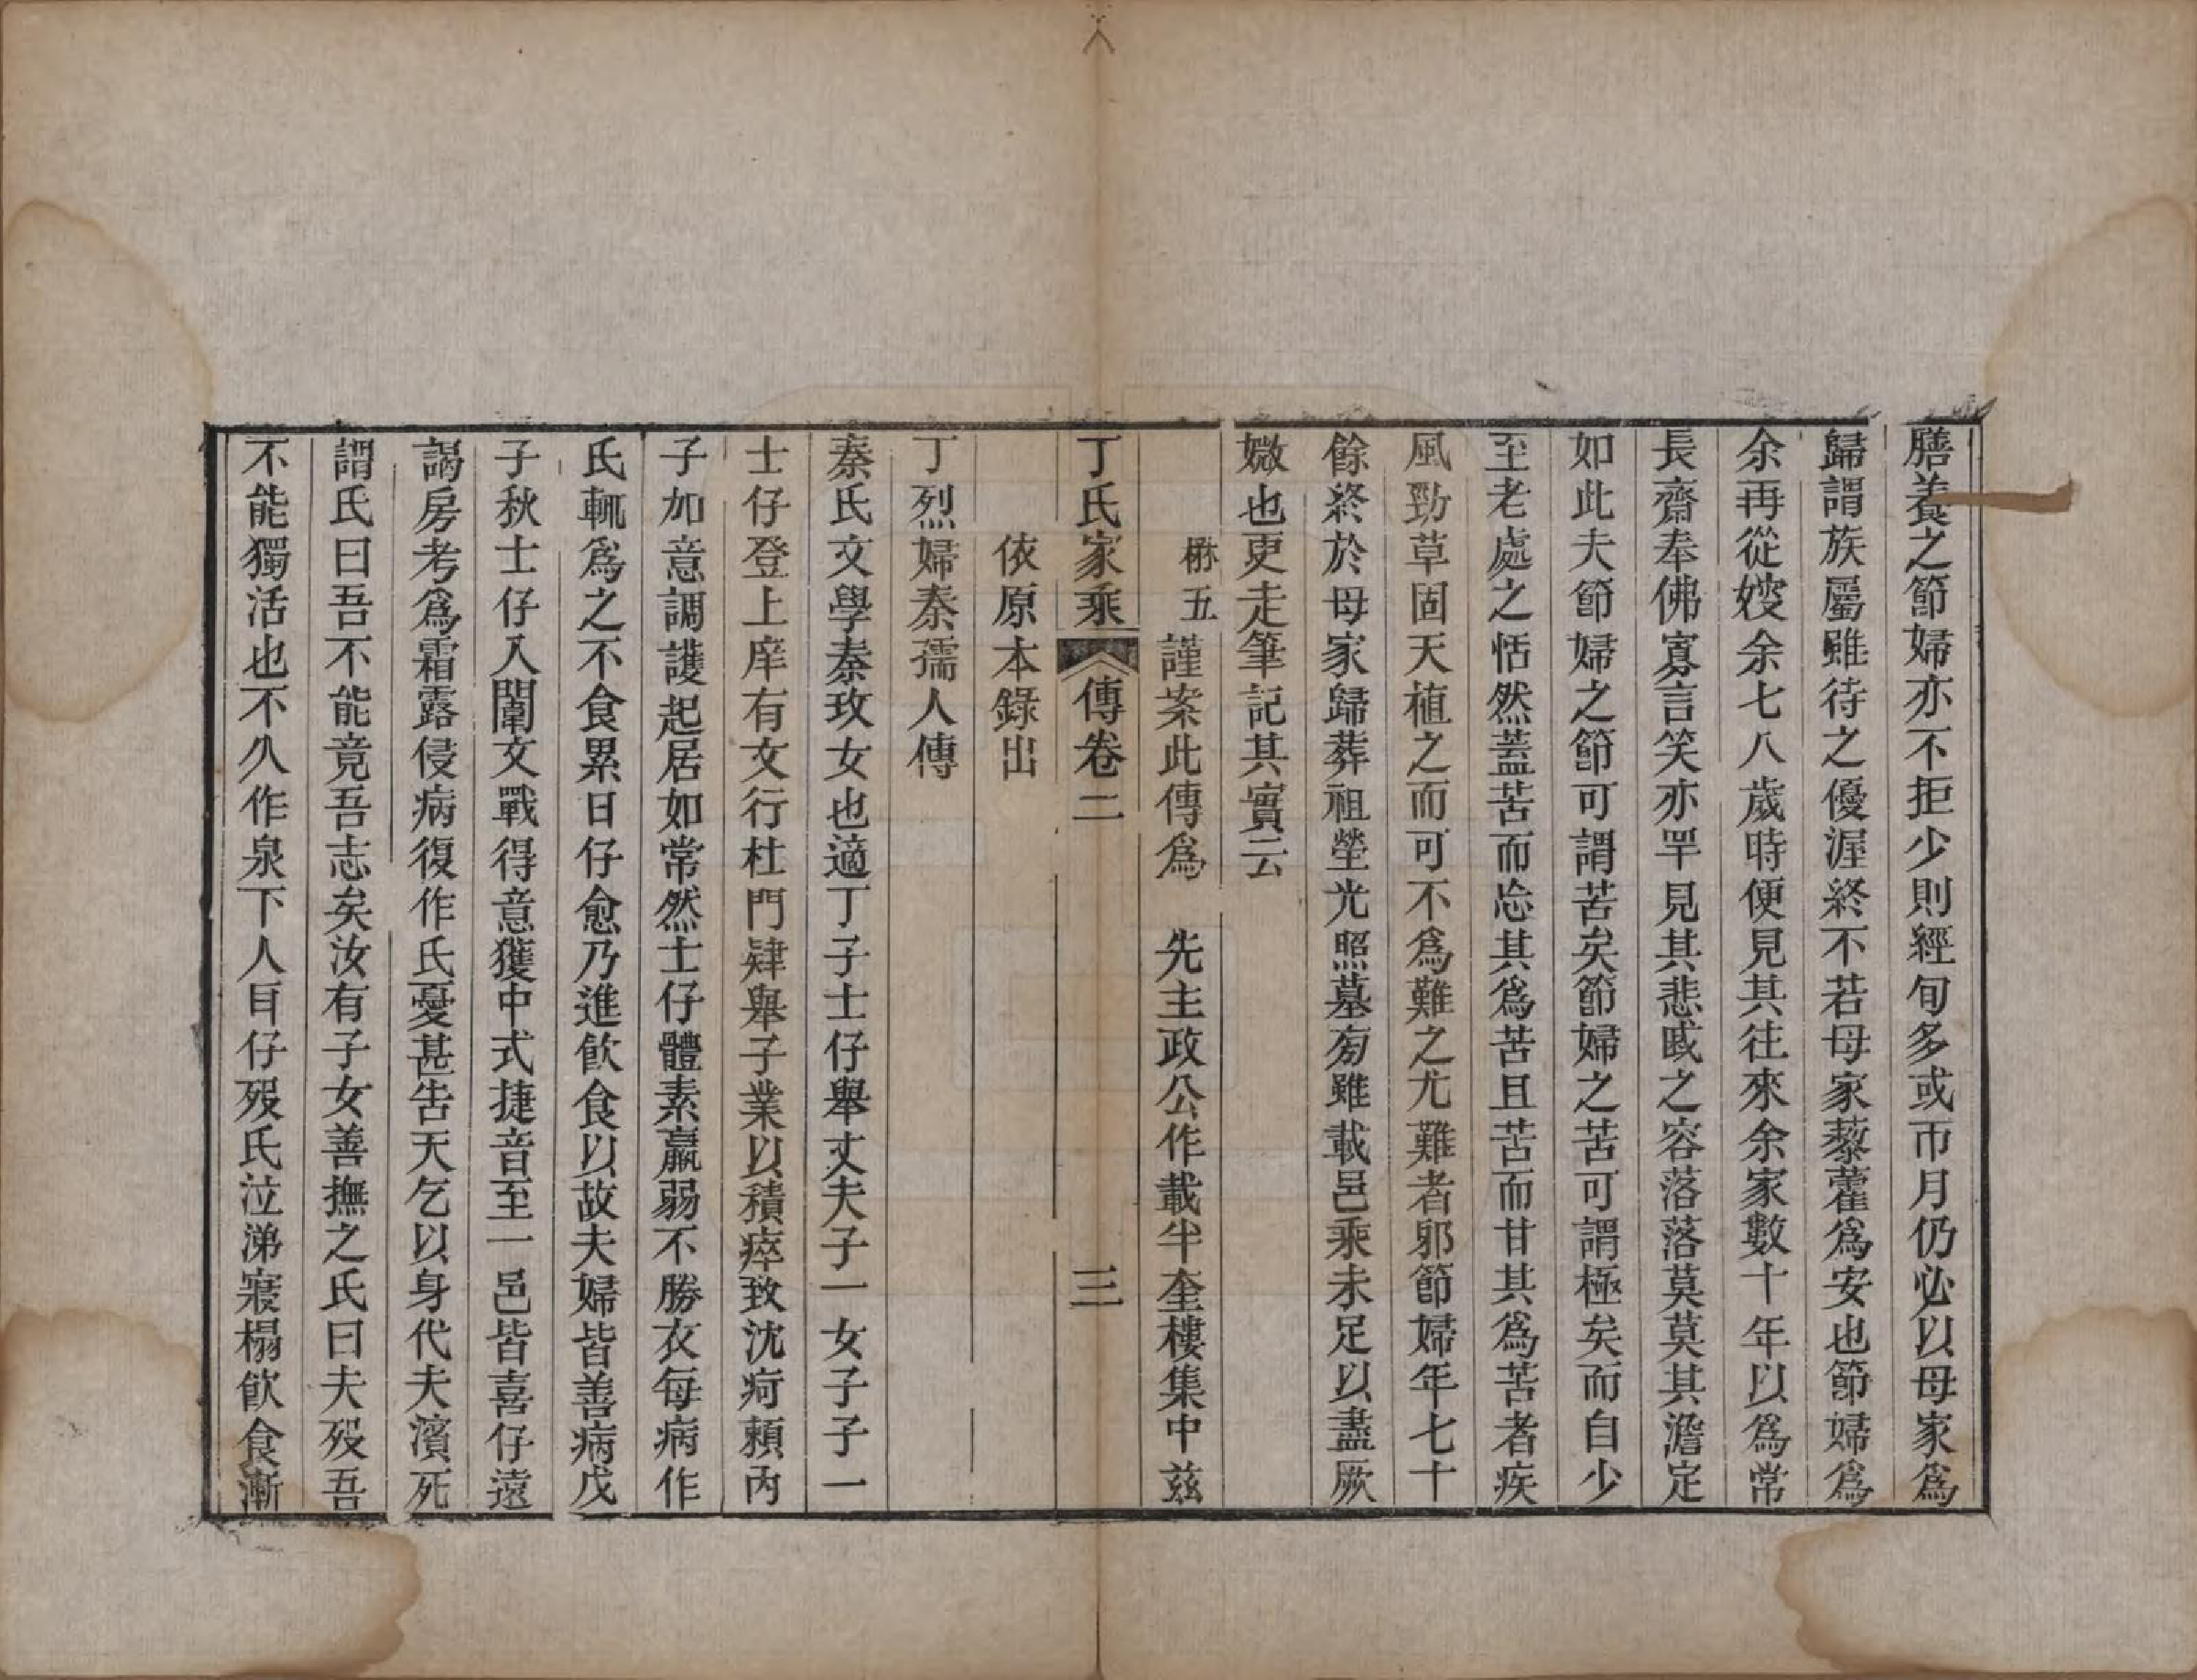 膳養之節婦亦不拒少則經旬多或帀月仍必以母家爲
歸謂族屬雖待之優渥終不若母家藜藿爲安也節婦爲
余再從嫂余七八歲時便見其往來余家數十年以爲常
長齋奉佛寡言笑亦罕見其悲戚之容落落莫莫其澹定
如此夫節婦之節可謂苦矣節婦之苦可謂極矣而自少
至老處之恬然蓋苦而忘其爲苦且苦而甘其爲苦者疾
風勁草固天植之而可不爲難之尤難者郍節婦年七十
餘終於母家歸葬祖塋光照墓旁雖載邑乘未足以盡厥
媺也更走筆記其實云
楙五謹案此傳爲　先主政公作載半奎樓集中茲
依原本錄出
丁氏家乘　傳卷二　三
丁烈婦秦孺人傳
秦氏文學秦玫女也適丁子士仔舉丈夫子一女子子一
士仔登上庠有文行杜門肄舉子業以積瘁致沈疴頼內
子加意調護起居如常然士仔體素羸弱不勝衣每病作
氏輒爲之不食累日仔愈乃進飮食以故夫婦皆善病戊
子秋士仔入闈文戰得意獲中式捷音至一邑皆喜仔遠
謁房考爲霜露侵病復作氏憂甚吿天乞以身代夫濱死
謂氏曰吾不能竟吾志矣汝有子女善撫之氏曰夫歿吾
不能獨活也不久作泉下人㠯仔歿氏泣涕寢榻飮食漸